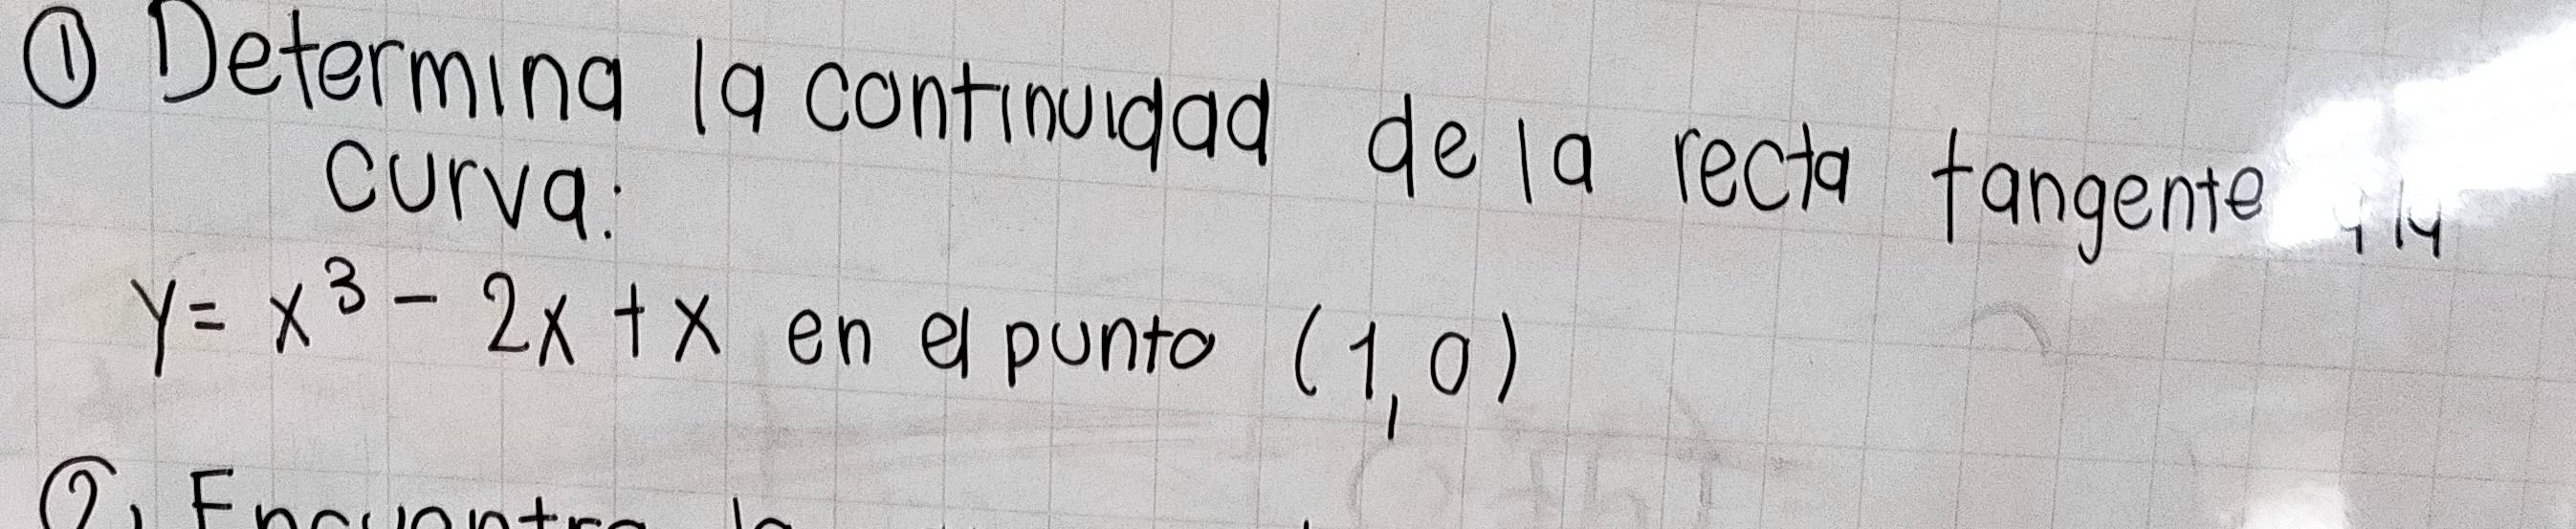 ① Determina la continuidad de la recta tangente a la
curva:
y = x³ - 2x + x en el punto (1,0)
② Encuentra la